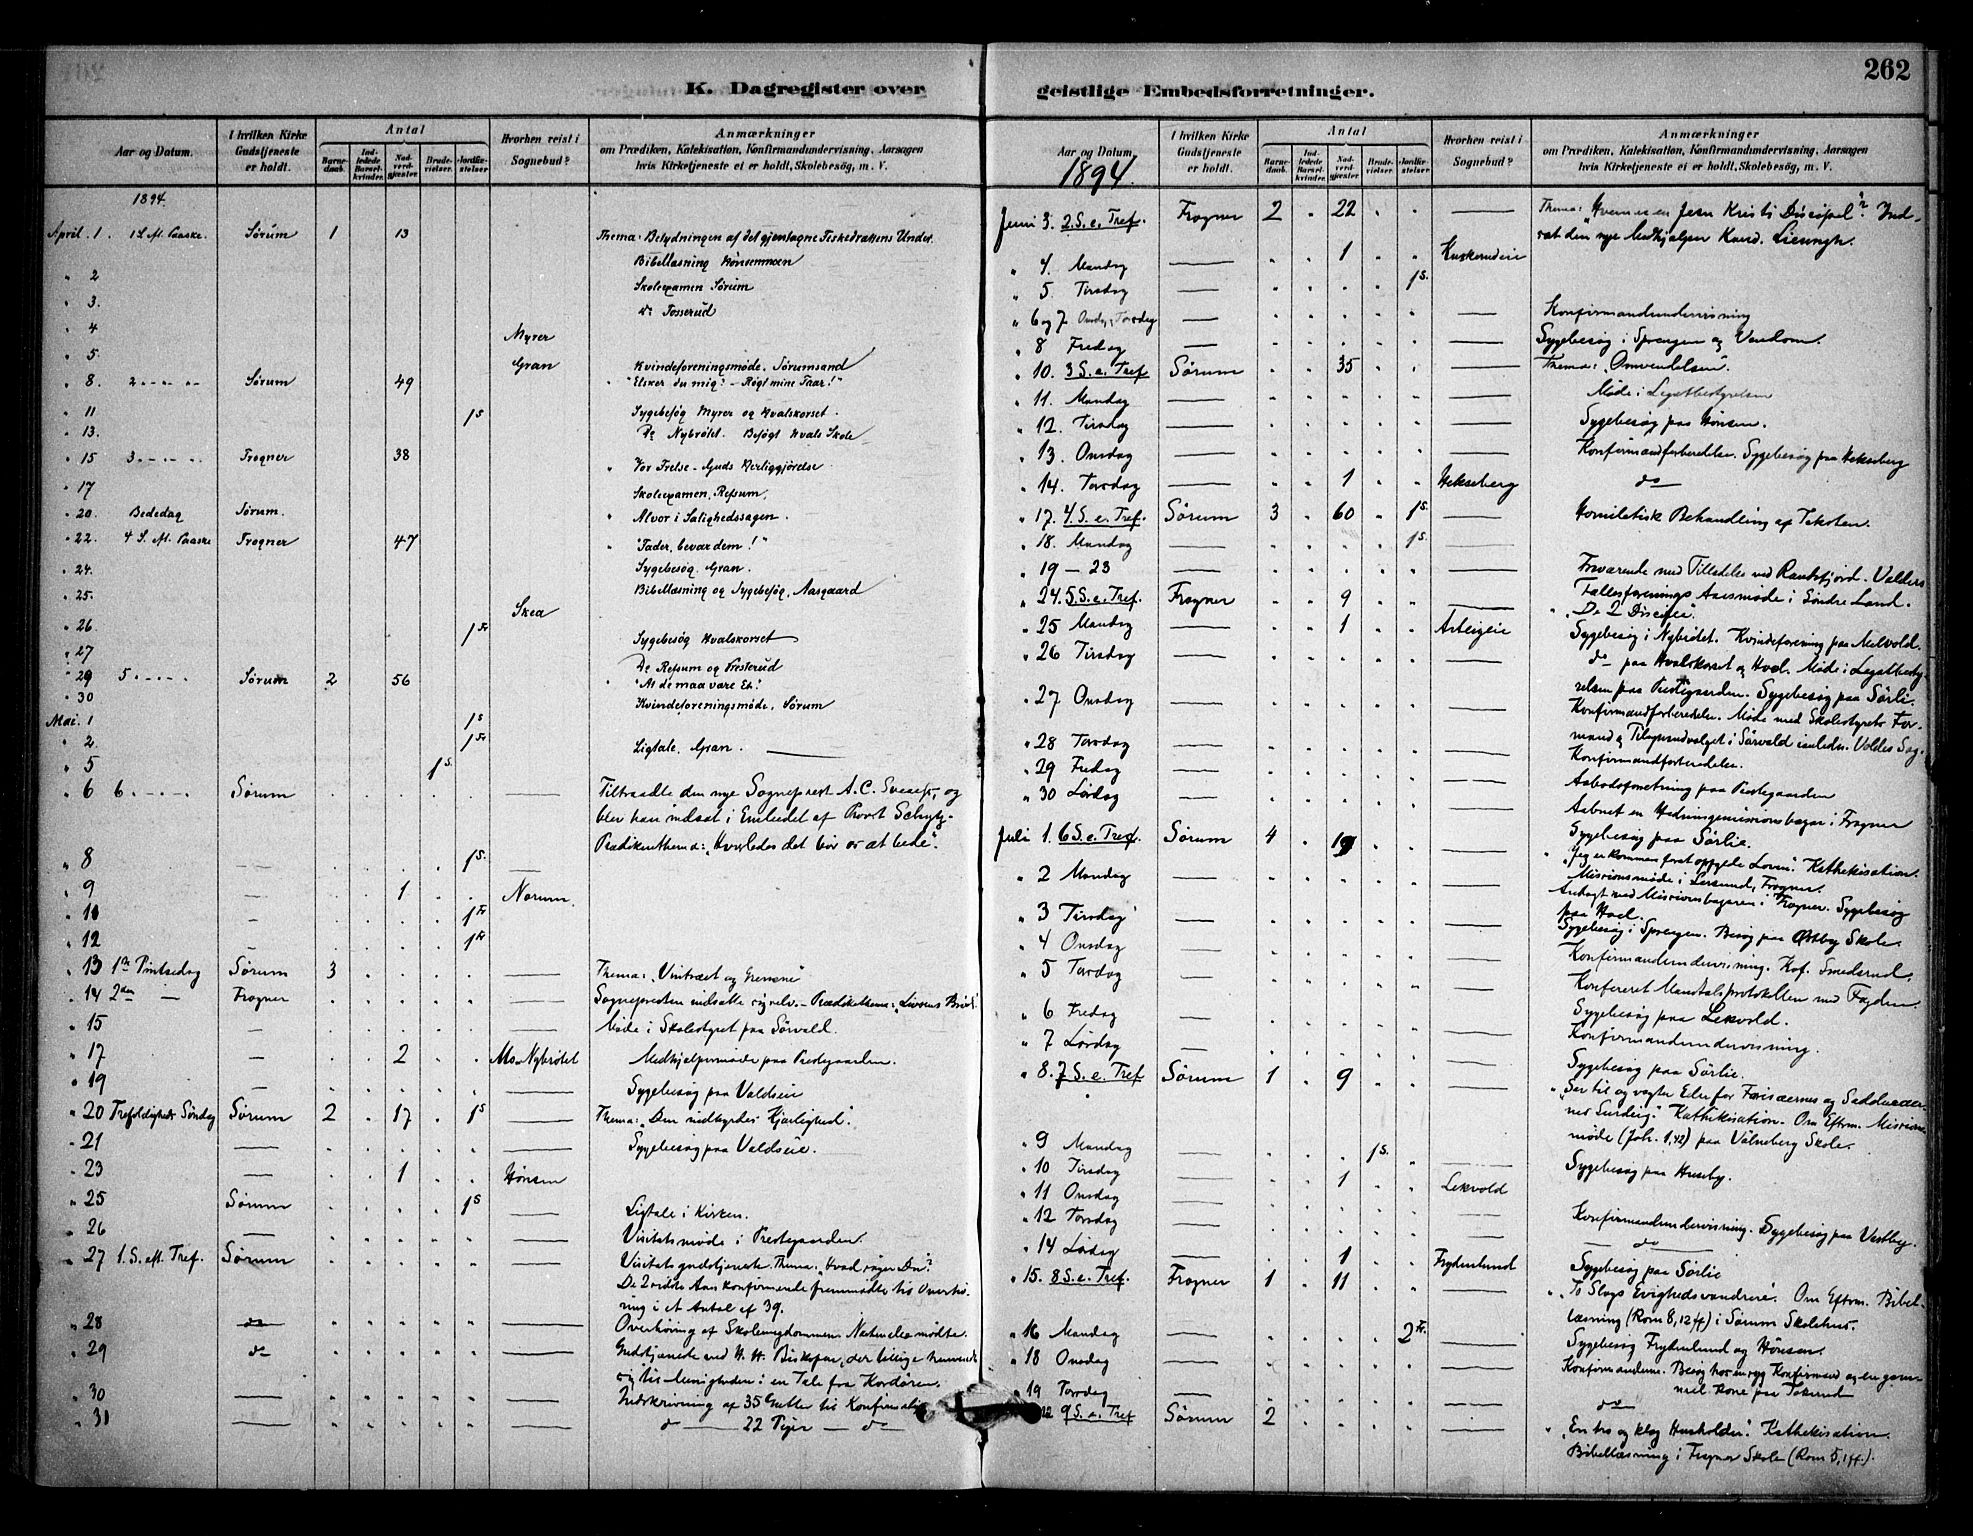 262
K. Dagregister over geistlige Embedsforretninger.
Aar og Datum.
I hvilken Kirke Gudstjeneste er holdt.
Antal
Barnedaab.
Indledede Barselkvinder.
Nadverdgjæster.
Brudevielser.
Jordfæstelser
Hvorhen reist i Sognebud?
Anmærkninger
om Prædiken, Katekisation, Konfirmandundervisning, Aarsagen
hvis Kirketjeneste ei er holdt, Skolebesøg, m. V.
1894.
April. 1 1 S. ef. Paaske. Sørum 1 13 Thema: Betydningen af det gjentagne Fiskedrættens Under.
" 2 Bibellæsning Hønsenmoen
" 3. Skoleexamen Sørum
" 4 Do Fosserud
" 5. Myrer
Gran Kvindeforeningsmøde. Sørumsand
" 8. 2 - - - - Sørum 49 " "Elsker du mig? - Røgt mine Faar!"
" 11 1 S Sygebesøg Myrer og Hvalskorset.
" 13. Do Nybrøtet. Besøgt Hvals Skole
" 15 3 - - - - Frogner 38 " Vor Frelse - Guds Herliggjørelse
" 17 Skoleexamen, Refsum.
" 20. Bededag Sørum. " Alvor i Salighedssagen.
" 22. 4 S. ef. Paaske Frogner 47 " "Fader, bevar dem!"
" 24. Sygebesøg. Gran.
" 25. Bibellæsning og Sygebesøg, Aasgaard
" 26 Skea
" 27 1 Fr Sygebesøg Hvalskorset
Do Refsum og Presterud
" 29 5 - - - - Sørum 2 56 " "At de maa være Et."
" 30 Kvindeforeningsmøde. Sørum
Mai. 1 1 S
" 2. 1 Fr Ligtale. Gran.
" 5 1 S.
" 6 6 - - - - Sørum Tiltraadte den nye Sogneprest A. C. og
blev han indsat i Embedet af Provst
Prædikenthema: "Hvorledes det bør os at bede".
" 8 1 S.
" 9 1 Norum.
" 10 1 Fr
" 12 1 Fr
" 13 1ste Pintsedag Sørum 3 Thema: "Vintræet og Grenene"
" 14 2den — Frogner Sognepresten indsatte sig selv. - Prædikethema: "Livsens Brød"
" 15 Møde i Skolestyret paa Sørvald.
" 17 2 Mo Nybrøtet Medhjælpermøde paa Prestegaarden.
" 19 Sygebesøg paa Valdseie
" 20 Trefoldigheds Søndag Sørum 2 17 1 S Thema: "Den Kjærlighed".
" 21 Sygebesøg paa Valdseie.
" 23 1 Hønsen
" 25 Sørum 1 S Ligtale i Kirken.
" 26 Visitatsmøde i Prestegaarden.
" 27 1. S. eft. Tref. Sørum Visitatsgudstjeneste. Thema: "Hvad siger Du?"
De 2 sidste Aars konfirmerede fremmødte til Overhø-
ring i et Antal af 39.
" 28 do Overhøring af Skoleungdommen.
" 29 do Gudstjeneste ved H. H. Biskopen, der tillige henvendte
sig til Menigheden i en Tale fra Kordøren.
" 30 Indskrivning af 35 Gutter til Konfirmation
" 31 do 22 Piger — do
Aar og Datum.
I hvilken Kirke Gudstjeneste er holdt.
Antal
Barnedaab.
Indledede Barselkvinder.
Nadverdgjæster.
Brudevielser.
Jordfæstelser
Hvorhen reist i Sognebud?
Anmærkninger
om Prædiken, Katekisation, Konfirmandundervisning, Aarsagen
hvis Kirketjeneste ei er holdt, Skolebesøg, m. V.
1894.
Juni 3. 2. S. e. Tref. Frogner 2 22 Thema: "Hvem er en Jesu Kristi Discipel"? Ind-
sat den nye Medhjælper
" 4. Mandag 1 Huskerudeie
" 5. Tirsdag 1 S.
" 6 og 7 Onsdag, Torsdag Konfirmandundervisning
" 8 Fredag Sygebesøg i Sprengen og
" 10. 3 S. e. Tref Sørum 35 Thema: "Omvendelsen".
" 11. Mandag Møde i Legatbestyrelsen
" 12. Tirsdag Sygebesøg paa Hønsen.
" 13. Onsdag Konfirmandforberedelse. Sygebesøg paa Hekseberg
" 14. Torsdag 1 Hekseberg do
" 17. 4. S. e. Tref. Sørum 3 60 1 S. Homiletisk Behandling af Teksten.
" 18. Mandag 1 S.
" 19 — 23 Fraværende med Tilladelse ved Randsfjord - Valders
Fællesforenings Aarsmøde i Søndre Land.
" 24. 5. S. e. Tref. Frogner 9 " "De 2 Disciple".
" 25 Mandag 1 Sygebesøg i Nybrøtet. Kvindeforening paa Melvold.
" 26 Tirsdag do — paa Hvalskorset og Hval. Møde i Legatbesty-
relsen paa Prestegaarden. Sygebesøg paa Sørlie.
" 27 Onsdag Konfirmandforberedelse. Møde med Skolestyrets For-
mand og Tilsynsudvalget i Sørvald
" 28 Torsdag Konfirmandforberedelse.
" 29 Fredag paa Prestegaarden
" 30 Lørdag Aabnet en Hedningemissionsbazar i Frogner
Sygebesøg paa Sørlie.
Juli 1. 6 S. e. Tref. Sørum 4 19 " "Jeg er kommen for at opfylde Loven". Kathekisation.
" 2 Mandag Missionsmøde i Frogner.
" 3 Tirsdag Andagt ved Missionsbazaren i Frogner. Sygebesøg
paa Hvel.
" 4 Onsdag Sygebesøg i Sprengen. Besøg paa Østby Skole.
" 5 Torsdag Konfirmandundervisning. Smederud.
" 6 Fredag Konfereret Mandtalsprotokollen med Fogden.
" 7 Lørdag Sygebesøg paa Lekvold.
Konfirmandundervisning.
Sygebesøg paa Sørlie.
" 8. 7 S. e. Tref Sørum 1 9 " "Ser til og vogter Eder for Farisæernes og Saddukæer-
nes Surdeig". Kathekisation. Om Efterm. Missions-
møde (Joh. 1,42) paa Valneberg Skole.
" 9 Mandag 1 S.
" 10 Tirsdag Sygebesøg paa Huseby.
" 11 Onsdag 1 Lekvold
" 12 Torsdag Konfirmandundervisning. Sygebesøg paa Vestby.
do
" 14 Lørdag 1 Frydenlund Sygebesøg paa Sørlie
" 15. 8 S. e. Tref. Frogner 1 11 " "To Slags Evighedsvandrere". Om Efterm. Bibel-
læsning (Rom 8, 12 ff) i Sørum Skolehus.
" 16 Mandag 2 Fr. Sygebesøg Frydenlund og Hønsen.
" 18 Onsdag Konfirmanderne. Besøg hos en syg Konfirmand og en gam-
mel Kone paa
" 19 Torsdag do
22 9 S. e. Tref Sørum 2 " "En tro og klog Husholder". Kathekisation.
Bibellæsning i Frogner Skole (Rom 5, 1 ff).